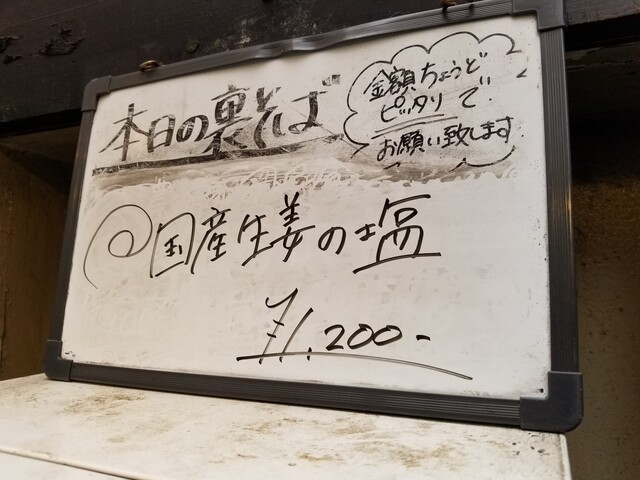 本日の裏そば
金額ちょうど
ピッタリで
お願い致します
@国産生姜の塩
¥1,200-